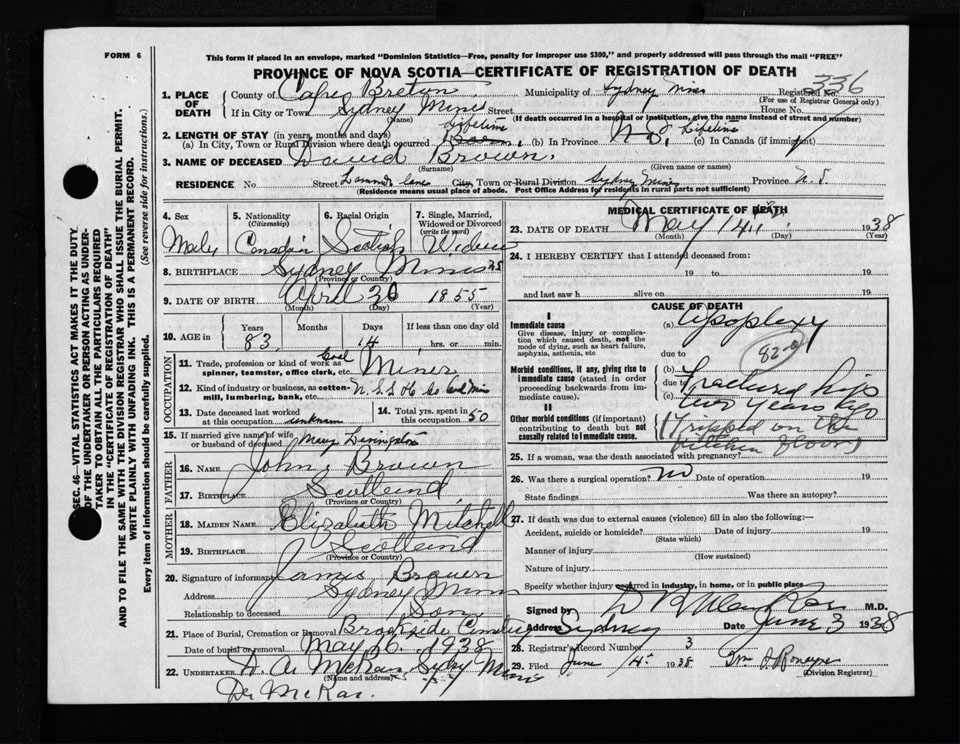 FORM 6
This form if placed in an envelope, marked "Dominion Statistics—Free, penalty for improper use $300," and properly addressed will pass through the mail "FREE"
PROVINCE OF NOVA SCOTIA—CERTIFICATE OF REGISTRATION OF DEATH
336
1. PLACE OF DEATH County of Cape Breton Municipality of Sydney Mines Registered No.
(For use of Registrar General only)
If in City or Town Sydney Mines Street House No.
(Name) (If death occurred in a hospital or institution, give the name instead of street and number)
2. LENGTH OF STAY (in years, months and days)
(a) In City, Town or Rural Division where death occurred Lifetime (b) In Province N.S. Lifetime (c) In Canada (if immigrant)
3. NAME OF DECEASED David Brown
(Surname) (Given name or names)
RESIDENCE No. Street Lane City, Town or Rural Division Sydney Mines Province N.S.
(Residence means usual place of abode. Post Office Address for residents in rural parts not sufficient)
4. Sex 5. Nationality (Citizenship) 6. Racial Origin 7. Single, Married, Widowed or Divorced (write the word)
Male Canadian Scotish Widow
8. BIRTHPLACE Sydney Mines
(Province or Country)
9. DATE OF BIRTH April 26 1855
(Month) (Day) (Year)
10. AGE in Years Months Days If less than one day old
83 14 hrs. or min.
OCCUPATION
11. Trade, profession or kind of work as spinner, teamster, office clerk, etc. Coal Miner
12. Kind of industry or business, as cotton-mill, lumbering, bank, etc. N.S.S Co Coal Mine
13. Date deceased last worked at this occupation unknown 14. Total yrs. spent in this occupation 50
15. If married give name of wife or husband of deceased Mary Livingston
FATHER
16. NAME John Brown
17. BIRTHPLACE Scotland
(Province or Country)
MOTHER
18. MAIDEN NAME Elizabeth Mitchell
19. BIRTHPLACE Scotland
(Province or Country)
20. Signature of informant James Brown
Address Sydney Mines
Relationship to deceased Son
21. Place of Burial, Cremation or Removal Brookside Cemetery
Date of burial or removal May 16 1938
22. UNDERTAKER H. A. McRae Sydney Mines
(Name and address)
Dr McRae.
MEDICAL CERTIFICATE OF DEATH
23. DATE OF DEATH May 14 1938
(Month) (Day) (Year)
24. I HEREBY CERTIFY that I attended deceased from:
19 to 19
and last saw h alive on 19
CAUSE OF DEATH
I
Immediate cause (a) Apoplexy
Give disease, injury or complication which caused death, not the mode of dying, such as heart failure, asphyxia, asthenia, etc
due to
82-a
Morbid conditions, if any, giving rise to immediate cause (stated in order proceeding backwards from immediate cause). (b)
due to Fractured hip
(c) two years ago
II
Other morbid conditions (if important) contributing to death but not causally related to immediate cause.
(Tripped on the kitchen floor)
25. If a woman, was the death associated with pregnancy?
26. Was there a surgical operation? no Date of operation 19
State findings Was there an autopsy?
27. If death was due to external causes (violence) fill in also the following:—
Accident, suicide or homicide? Date of injury 19
(State which)
Manner of injury
(How sustained)
Nature of injury
Specify whether injury occurred in industry, in home, or in public place
Signed by M.D.
Address Sydney Date June 3 1938
28. Registrar's Record Number 3
29. Filed June 4 1938
(Division Registrar)
SEC. 46—VITAL STATISTICS ACT MAKES IT THE DUTY OF THE UNDERTAKER OR PERSON ACTING AS UNDERTAKER TO OBTAIN ALL THE PARTICULARS REQUIRED IN THE "CERTIFICATE OF REGISTRATION OF DEATH"
AND TO FILE THE SAME WITH THE DIVISION REGISTRAR WHO SHALL ISSUE THE BURIAL PERMIT.
WRITE PLAINLY WITH UNFADING INK. THIS IS A PERMANENT RECORD.
Every item of information should be carefully supplied. (See reverse side for instructions.)